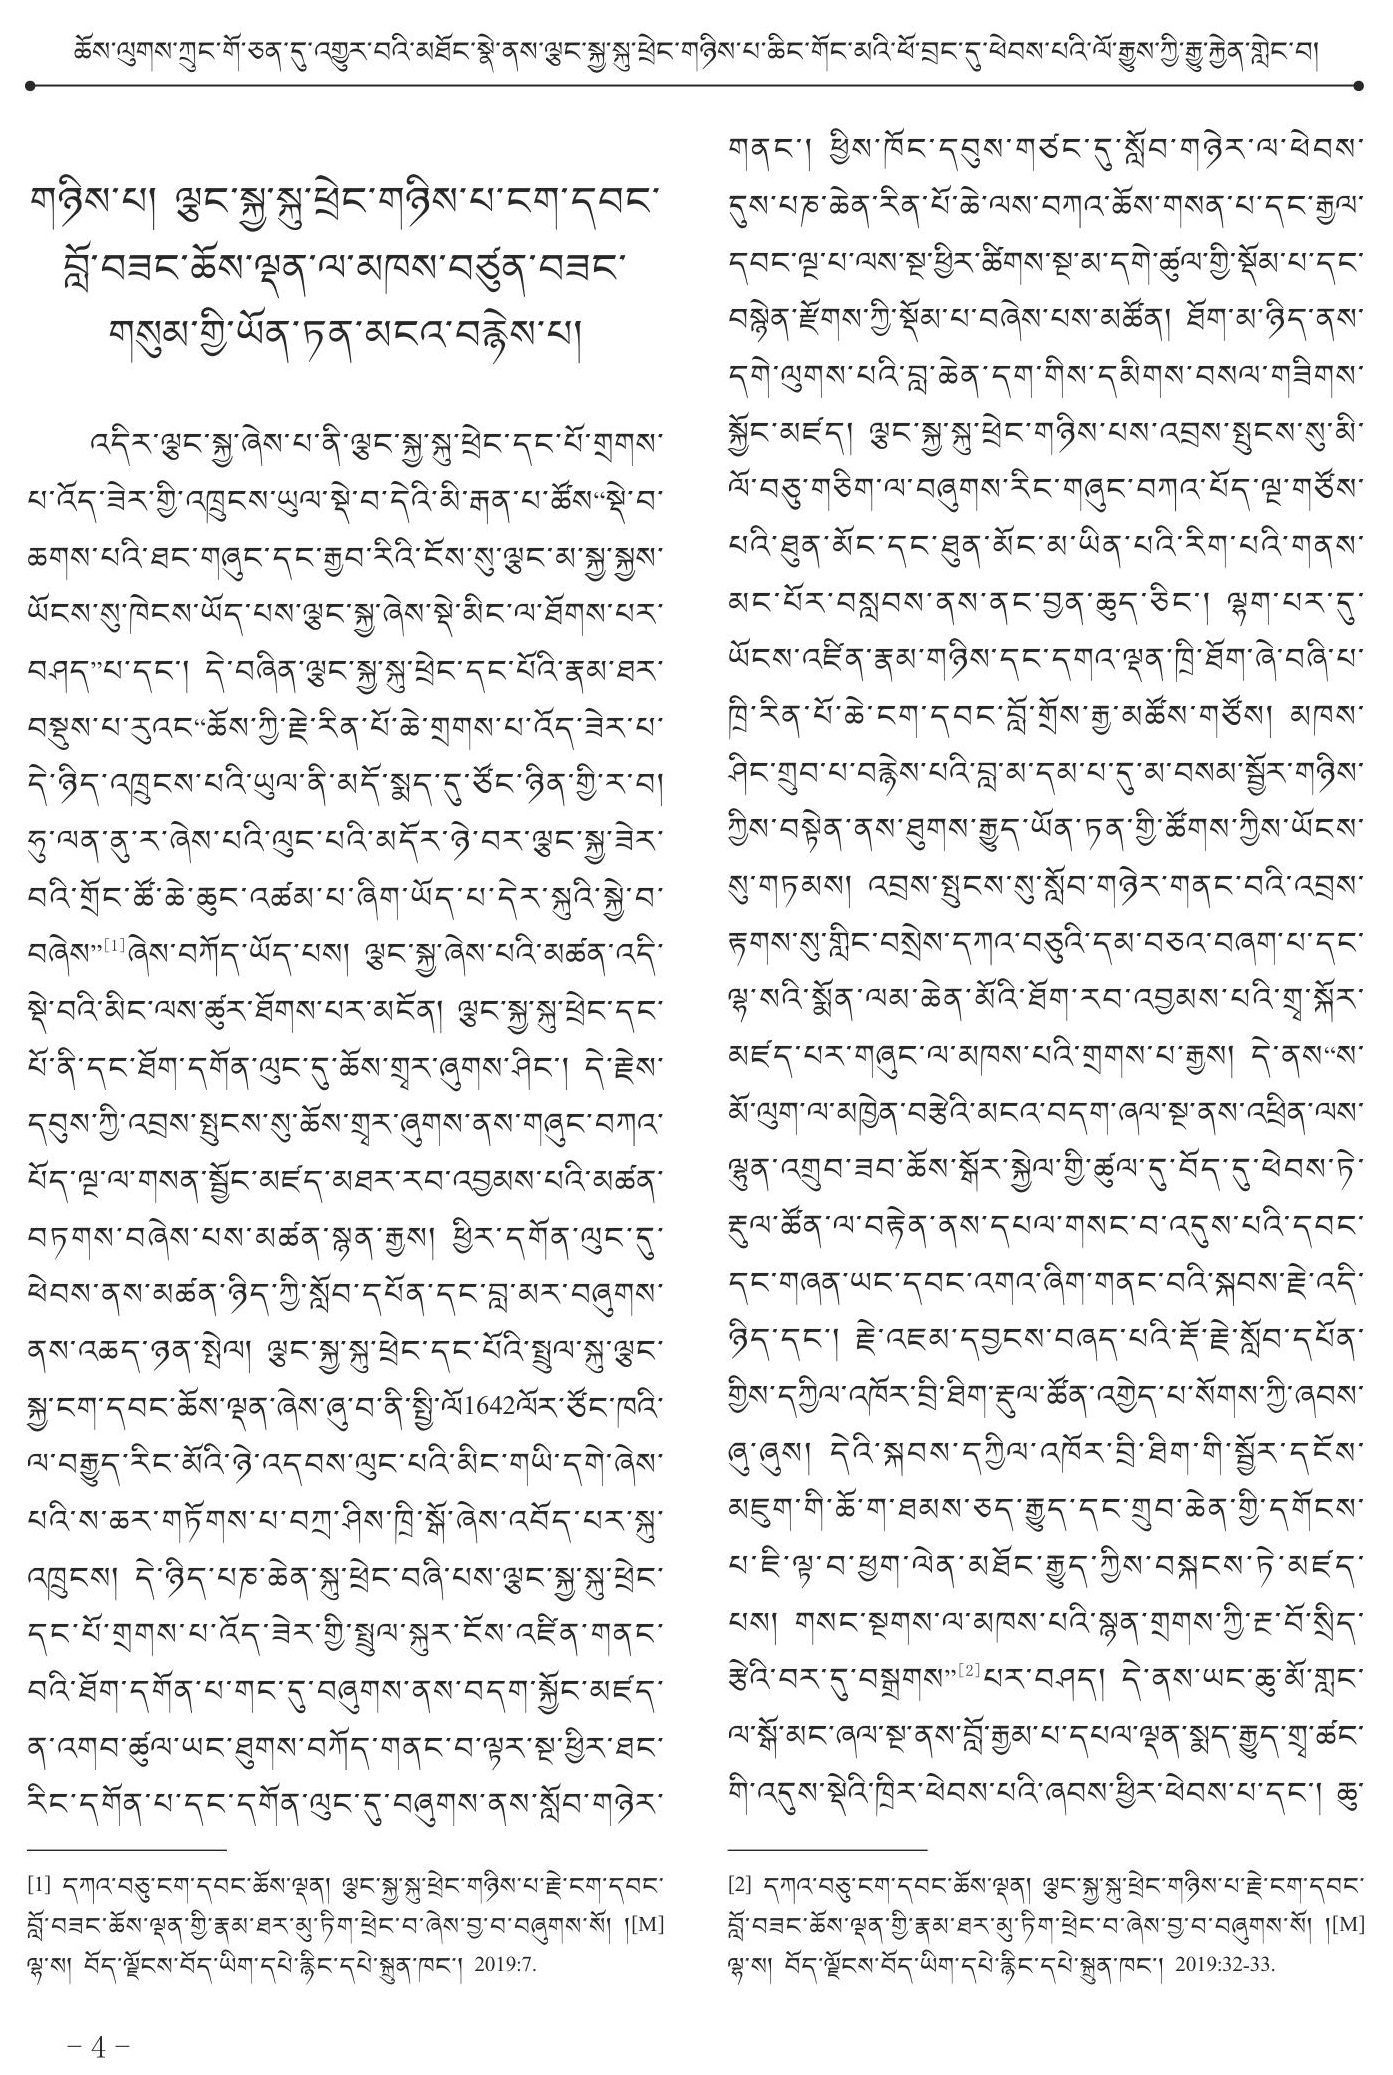 ཆོས་ལུགས་ཀྲུང་གོ་ཅན་དུ་འགྱུར་བའི་མཐོང་སྣེ་ནས་ལྕང་སྐྱ་སྐུ་ཕྲེང་གཉིས་པ་ཆིང་གོང་མའི་ཕོ་བྲང་དུ་ཕེབས་པའི་ལོ་རྒྱུས་ཀྱི་རྒྱུ་རྐྱེན་གླེང་བ།
གཉིས་པ། ལྕང་སྐྱ་སྐུ་ཕྲེང་གཉིས་པ་ངག་དབང་
བློ་བཟང་ཆོས་ལྡན་ལ་མཁས་བཙུན་བཟང་
གསུམ་གྱི་ཡོན་ཏན་མངའ་བརྙེས་པ།
འདིར་ལྕང་སྐྱ་ཞེས་པ་ནི་ལྕང་སྐྱ་སྐུ་ཕྲེང་དང་པོ་གྲགས་
པ་འོད་ཟེར་གྱི་འཁྲུངས་ཡུལ་སྡེ་བ་དེའི་མི་རྒན་པ་ཚོས“སྡེ་བ་
ཆགས་པའི་ཐང་གཞུང་དང་རྒྱབ་རིའི་ངོས་སུ་ལྕང་མ་སྐྱ་སྐྱས་
ཡོངས་སུ་ཁེངས་ཡོད་པས་ལྕང་སྐྱ་ཞེས་སྡེ་མིང་ལ་ཐོགས་པར་
བཤད”པ་དང་། དེ་བཞིན་ལྕང་སྐྱ་སྐུ་ཕྲེང་དང་པོའི་རྣམ་ཐར་
བསྡུས་པ་རུའང“ཆོས་ཀྱི་རྗེ་རིན་པོ་ཆེ་གྲགས་པ་འོད་ཟེར་པ་
དེ་ཉིད་འཁྲུངས་པའི་ཡུལ་ནི་མདོ་སྨད་དུ་ཙོང་ཉིན་གྱི་ར་བ།
ཧུ་ལན་ནུ་ར་ཞེས་པའི་ལུང་པའི་མདོར་ཉེ་བར་ལྕང་སྐྱ་ཟེར་
བའི་གྲོང་ཚོ་ཆེ་ཆུང་འཚམ་པ་ཞིག་ཡོད་པ་དེར་སྐུའི་སྐྱེ་བ་
བཞེས”[1]ཞེས་བཀོད་ཡོད་པས། ལྕང་སྐྱ་ཞེས་པའི་མཚན་འདི་
སྡེ་བའི་མིང་ལས་ཚུར་ཐོགས་པར་མངོན། ལྕང་སྐྱ་སྐུ་ཕྲེང་དང་
པོ་ནི་དང་ཐོག་དགོན་ལུང་དུ་ཆོས་གྲྭར་ཞུགས་ཤིང་། དེ་རྗེས་
དབུས་ཀྱི་འབྲས་སྤུངས་སུ་ཆོས་གྲྭར་ཞུགས་ནས་གཞུང་བཀའ་
པོད་ལྔ་ལ་གསན་སྦྱོང་མཛད་མཐར་རབ་འབྱམས་པའི་མཚན་
བཏགས་བཞེས་པས་མཚན་སྙན་རྒྱས། ཕྱིར་དགོན་ལུང་དུ་
ཕེབས་ནས་མཚན་ཉིད་ཀྱི་སློབ་དཔོན་དང་བླ་མར་བཞུགས་
ནས་འཆད་ཉན་སྤེལ། ལྕང་སྐྱ་སྐུ་ཕྲེང་དང་པོའི་སྤྲུལ་སྐུ་ལྕང་
སྐྱ་ངག་དབང་ཆོས་ལྡན་ཞེས་ཞུ་བ་ནི་སྤྱི་ལོ1642ལོར་ཙོང་ཁའི་
ལ་བརྒྱུད་རིང་མོའི་ཉེ་འདབས་ལུང་པའི་མིང་གཡི་དགེ་ཞེས་
པའི་ས་ཆར་གཏོགས་པ་བཀྲ་ཤིས་ཁྲི་སྒོ་ཞེས་འབོད་པར་སྐུ་
འཁྲུངས། དེ་ཉིད་པཎ་ཆེན་སྐུ་ཕྲེང་བཞི་པས་ལྕང་སྐྱ་སྐུ་ཕྲེང་
དང་པོ་གྲགས་པ་འོད་ཟེར་གྱི་སྤྲུལ་སྐུར་ངོས་འཛིན་གནང་
བའི་ཐོག་དགོན་པ་གང་དུ་བཞུགས་ནས་བདག་སྐྱོང་མཛད་
ན་འགབ་ཚུལ་ཡང་ཐུགས་བཀོད་གནང་བ་ལྟར་སྔ་ཕྱིར་ཐང་
རིང་དགོན་པ་དང་དགོན་ལུང་དུ་བཞུགས་ནས་སློབ་གཉེར་
[1] དཀའ་བཅུ་ངག་དབང་ཆོས་ལྡན། ལྕང་སྐྱ་སྐུ་ཕྲེང་གཉིས་པ་རྗེ་ངག་དབང་
བློ་བཟང་ཆོས་ལྡན་གྱི་རྣམ་ཐར་མུ་ཏིག་ཕྲེང་བ་ཞེས་བྱ་བ་བཞུགས་སོ། །[M]
ལྷ་ས། བོད་ལྗོངས་བོད་ཡིག་དཔེ་རྙིང་དཔེ་སྐྲུན་ཁང་། 2019:7.
གནང་། ཕྱིས་ཁོང་དབུས་གཙང་དུ་སློབ་གཉེར་ལ་ཕེབས་
དུས་པཎ་ཆེན་རིན་པོ་ཆེ་ལས་བཀའ་ཆོས་གསན་པ་དང་རྒྱལ་
དབང་ལྔ་པ་ལས་སྔ་ཕྱིར་ཚིགས་སྔ་མ་དགེ་ཚུལ་གྱི་སྡོམ་པ་དང་
བསྙེན་རྫོགས་ཀྱི་སྡོམ་པ་བཞེས་པས་མཚོན། ཐོག་མ་ཉིད་ནས་
དགེ་ལུགས་པའི་བླ་ཆེན་དག་གིས་དམིགས་བསལ་གཟིགས་
སྐྱོང་མཛད། ལྕང་སྐྱ་སྐུ་ཕྲེང་གཉིས་པས་འབྲས་སྤུངས་སུ་མི་
ལོ་བཅུ་གཅིག་ལ་བཞུགས་རིང་གཞུང་བཀའ་པོད་ལྔ་གཙོས་
པའི་ཐུན་མོང་དང་ཐུན་མོང་མ་ཡིན་པའི་རིག་པའི་གནས་
མང་པོར་བསླབས་ནས་ནང་བྱན་ཆུད་ཅིང་། ལྷག་པར་དུ་
ཡོངས་འཛིན་རྣམ་གཉིས་དང་དགའ་ལྡན་ཁྲི་ཐོག་ཞེ་བཞི་པ་
ཁྲི་རིན་པོ་ཆེ་ངག་དབང་བློ་གྲོས་རྒྱ་མཚོས་གཙོས། མཁས་
ཤིང་གྲུབ་པ་བརྙེས་པའི་བླ་མ་དམ་པ་དུ་མ་བསམ་སྦྱོར་གཉིས་
ཀྱིས་བསྟེན་ནས་ཐུགས་རྒྱུད་ཡོན་ཏན་གྱི་ཚོགས་ཀྱིས་ཡོངས་
སུ་གཏམས། འབྲས་སྤུངས་སུ་སློབ་གཉེར་གནང་བའི་འབྲས་
རྟགས་སུ་གླིང་བསྲེས་དཀའ་བཅུའི་དམ་བཅའ་བཞག་པ་དང་
ལྷ་སའི་སྨོན་ལམ་ཆེན་མོའི་ཐོག་རབ་འབྱམས་པའི་གྲྭ་སྐོར་
མཛད་པར་གཞུང་ལ་མཁས་པའི་གྲགས་པ་རྒྱས། དེ་ནས“ས་
མོ་ལུག་ལ་མཁྱེན་བརྩེའི་མངའ་བདག་ཞལ་སྔ་ནས་འཕྲིན་ལས་
ལྷུན་འགྲུབ་ཟབ་ཆོས་སྒོར་སྐྱེལ་གྱི་ཚུལ་དུ་བོད་དུ་ཕེབས་ཏེ་
རྡུལ་ཚོན་ལ་བརྟེན་ནས་དཔལ་གསང་བ་འདུས་པའི་དབང་
དང་གཞན་ཡང་དབང་འགའ་ཞིག་གནང་བའི་སྐབས་རྗེ་འདི་
ཉིད་དང་། རྗེ་འཇམ་དབྱངས་བཞད་པའི་རྡོ་རྗེ་སློབ་དཔོན་
གྱིས་དཀྱིལ་འཁོར་བྲི་ཐིག་རྡུལ་ཚོན་འགྱེད་པ་སོགས་ཀྱི་ཞབས་
ཞུ་ཞུས། དེའི་སྐབས་དཀྱིལ་འཁོར་བྲི་ཐིག་གི་སྦྱོར་དངོས་
མཇུག་གི་ཆོ་ག་ཐམས་ཅད་རྒྱུད་དང་གྲུབ་ཆེན་གྱི་དགོངས་
པ་ཇི་ལྟ་བ་ཕྱག་ལེན་མཐོང་རྒྱུད་ཀྱིས་བསྐངས་ཏེ་མཛད་
པས། གསང་སྔགས་ལ་མཁས་པའི་སྙན་གྲགས་ཀྱི་རྔ་བོ་སྲིད་
རྩེའི་བར་དུ་བསྒྲགས”[2]པར་བཤད། དེ་ནས་ཡང་ཆུ་མོ་གླང་
ལ་སྒོ་མང་ཞལ་སྔ་ནས་བློ་རྒྱམ་པ་དཔལ་ལྡན་སྨད་རྒྱུད་གྲྭ་ཚང་
གི་འདུས་སྡེའི་ཁྲིར་ཕེབས་པའི་ཞབས་ཕྱིར་ཕེབས་པ་དང་། ཆུ་
[2] དཀའ་བཅུ་ངག་དབང་ཆོས་ལྡན། ལྕང་སྐྱ་སྐུ་ཕྲེང་གཉིས་པ་རྗེ་ངག་དབང་
བློ་བཟང་ཆོས་ལྡན་གྱི་རྣམ་ཐར་མུ་ཏིག་ཕྲེང་བ་ཞེས་བྱ་བ་བཞུགས་སོ། །[M]
ལྷ་ས། བོད་ལྗོངས་བོད་ཡིག་དཔེ་རྙིང་དཔེ་སྐྲུན་ཁང་། 2019:32-33.
- 4 -